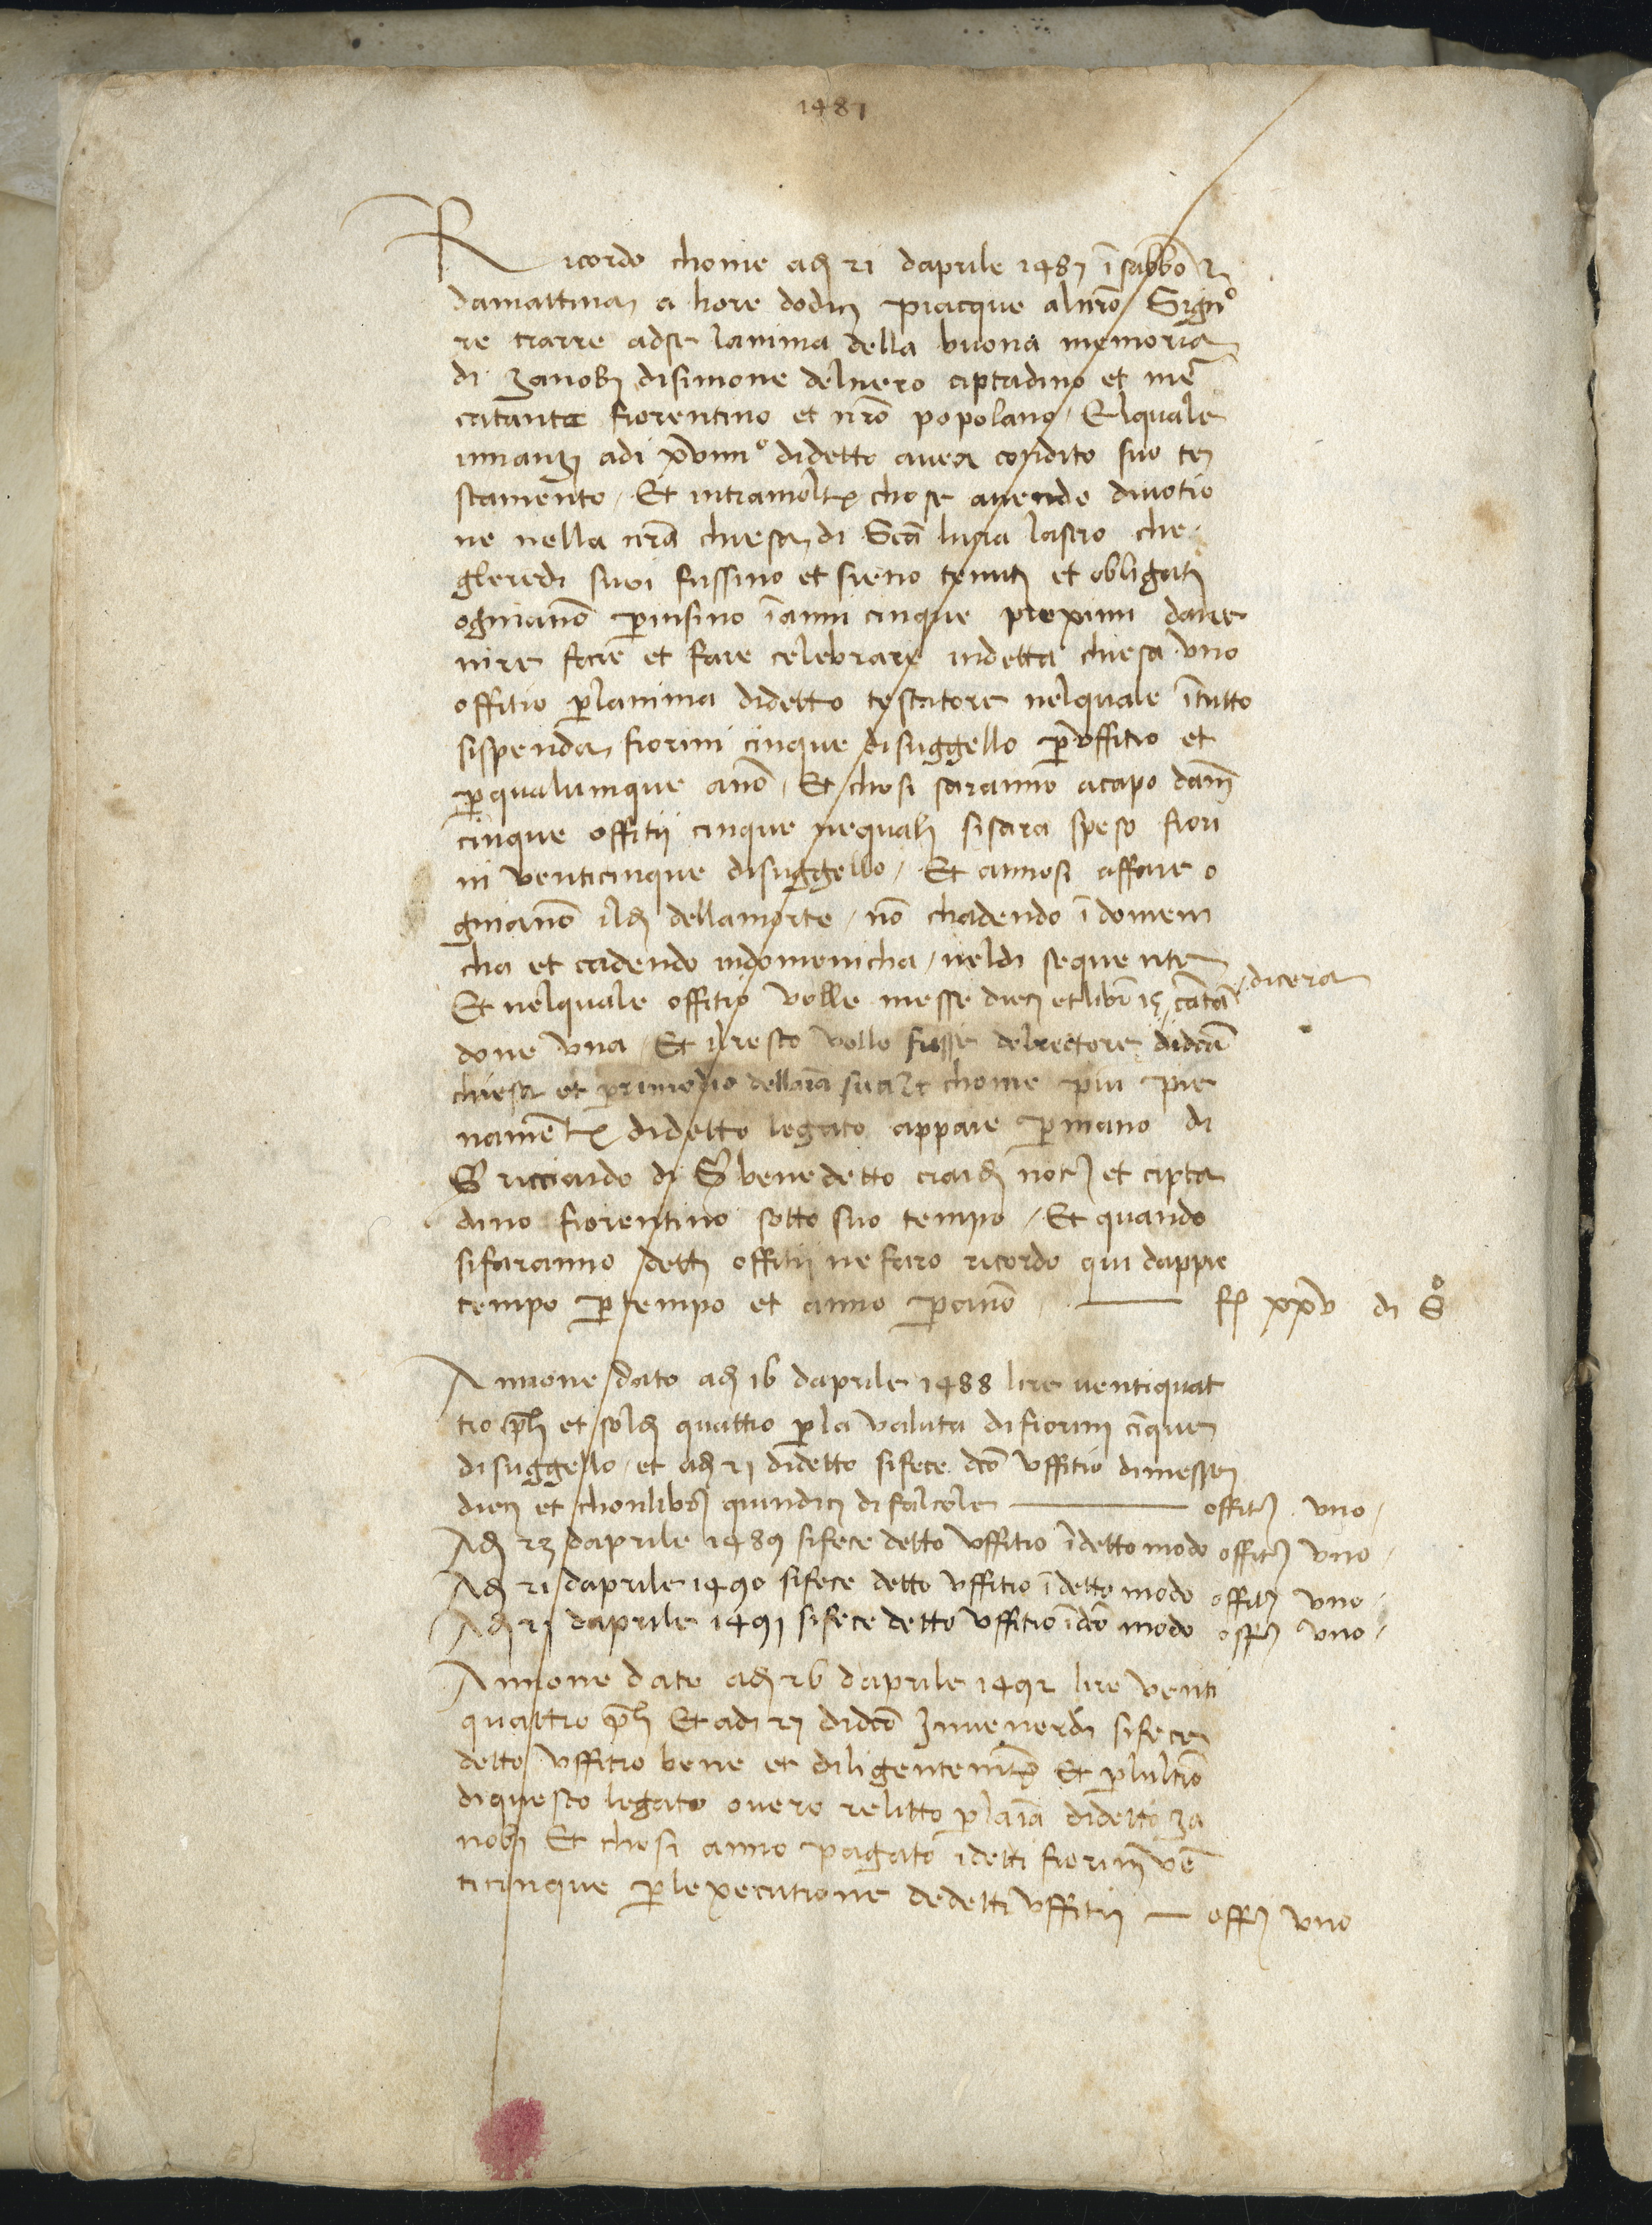 1487
Ricordo chome adj 21 daprile 1487 ī sabbō
damattina a hore dodicj piacque alnrō Signo
re trarre adse lanima della buona memoria
di zanobj disimone delnero ciptadino et me
catante fiorentino et nrō popolano / Elquale
innanzj adi xviiiiº didetto avea condito suo te
stamento / Et intramolte chose avendo divotio
ne nella nrā chiesa di Scā lucia lascio che
glieredi suoi fussino et sieno tenutj et obligatj
ogniannō p̄ insino ī anni cinque proximi dave
nire fare et fare celebrare indetta chiesa uno
offitio p̄ lanima didetto testatore nelquale ī tutto
sispenda fiorini cinque disuggello p̄ uffitio et
p̄ qualunque annō / Et chosi saranno acapo dannj
cinque offitii cinque nequalj sisara speso fiori
ni venticinque disuggello / Et annosi affare o
gniannō ildj dellamorte / nō chadendo ī domeni
cha et cadendo indomenicha / neldi sequente
Et nelquale offitio volle messe diecj et libr̄ 15 dicera cātā
done una / Et ilresto volle fusse delrectore didcā
chiesa et p̄ rimedio dellaīa sua Et chome piu pie
namēte didetto legato appare p̄ mano di
S ricciardo di S benedetto ciardj notº et cipta
dino fiorentino sotto suo tempo / Et quando
sifaranno dettj offitii ne faro ricordo qui dappie
tempo p̄ tempo et anno p̄ annō — fj xxv di Sº
Annone dato adj 16 daprile 1488 lire ventiquat
tro pli et soldj quattro p̄ la valuta difiorini cinque
disuggello / et adj 21 didetto sifece dcō uffitio dimesse
diecj et chonlibr̄ quindicj di falcole — offitº uno /
Adj 23 daprile 1489 sifece detto uffitio ī detto modo offitº uno /
Adj 21 daprile 1490 sifece detto uffitio ī detto modo offitº uno /
Adj 21 daprile 1491 sifece detto uffitio ī dcō modo offº uno /
Annone dato adj 26 daprile 1492 lire venti
quattro pli Et adi 27 didcō Invenerdi sifece
detto uffitio bene et diligentemēte Et p̄ lultīo
diquesto legato overo relitto p̄ laīa didetto za
nobj Et chosi anno pagato i detti fiorinj vē
ticinque p̄ lexecutione dedetti uffitii — offº uno